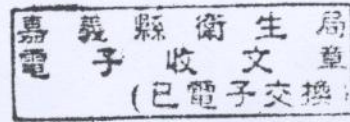 嘉義縣衛生局
電子收文章
(已電子交換)